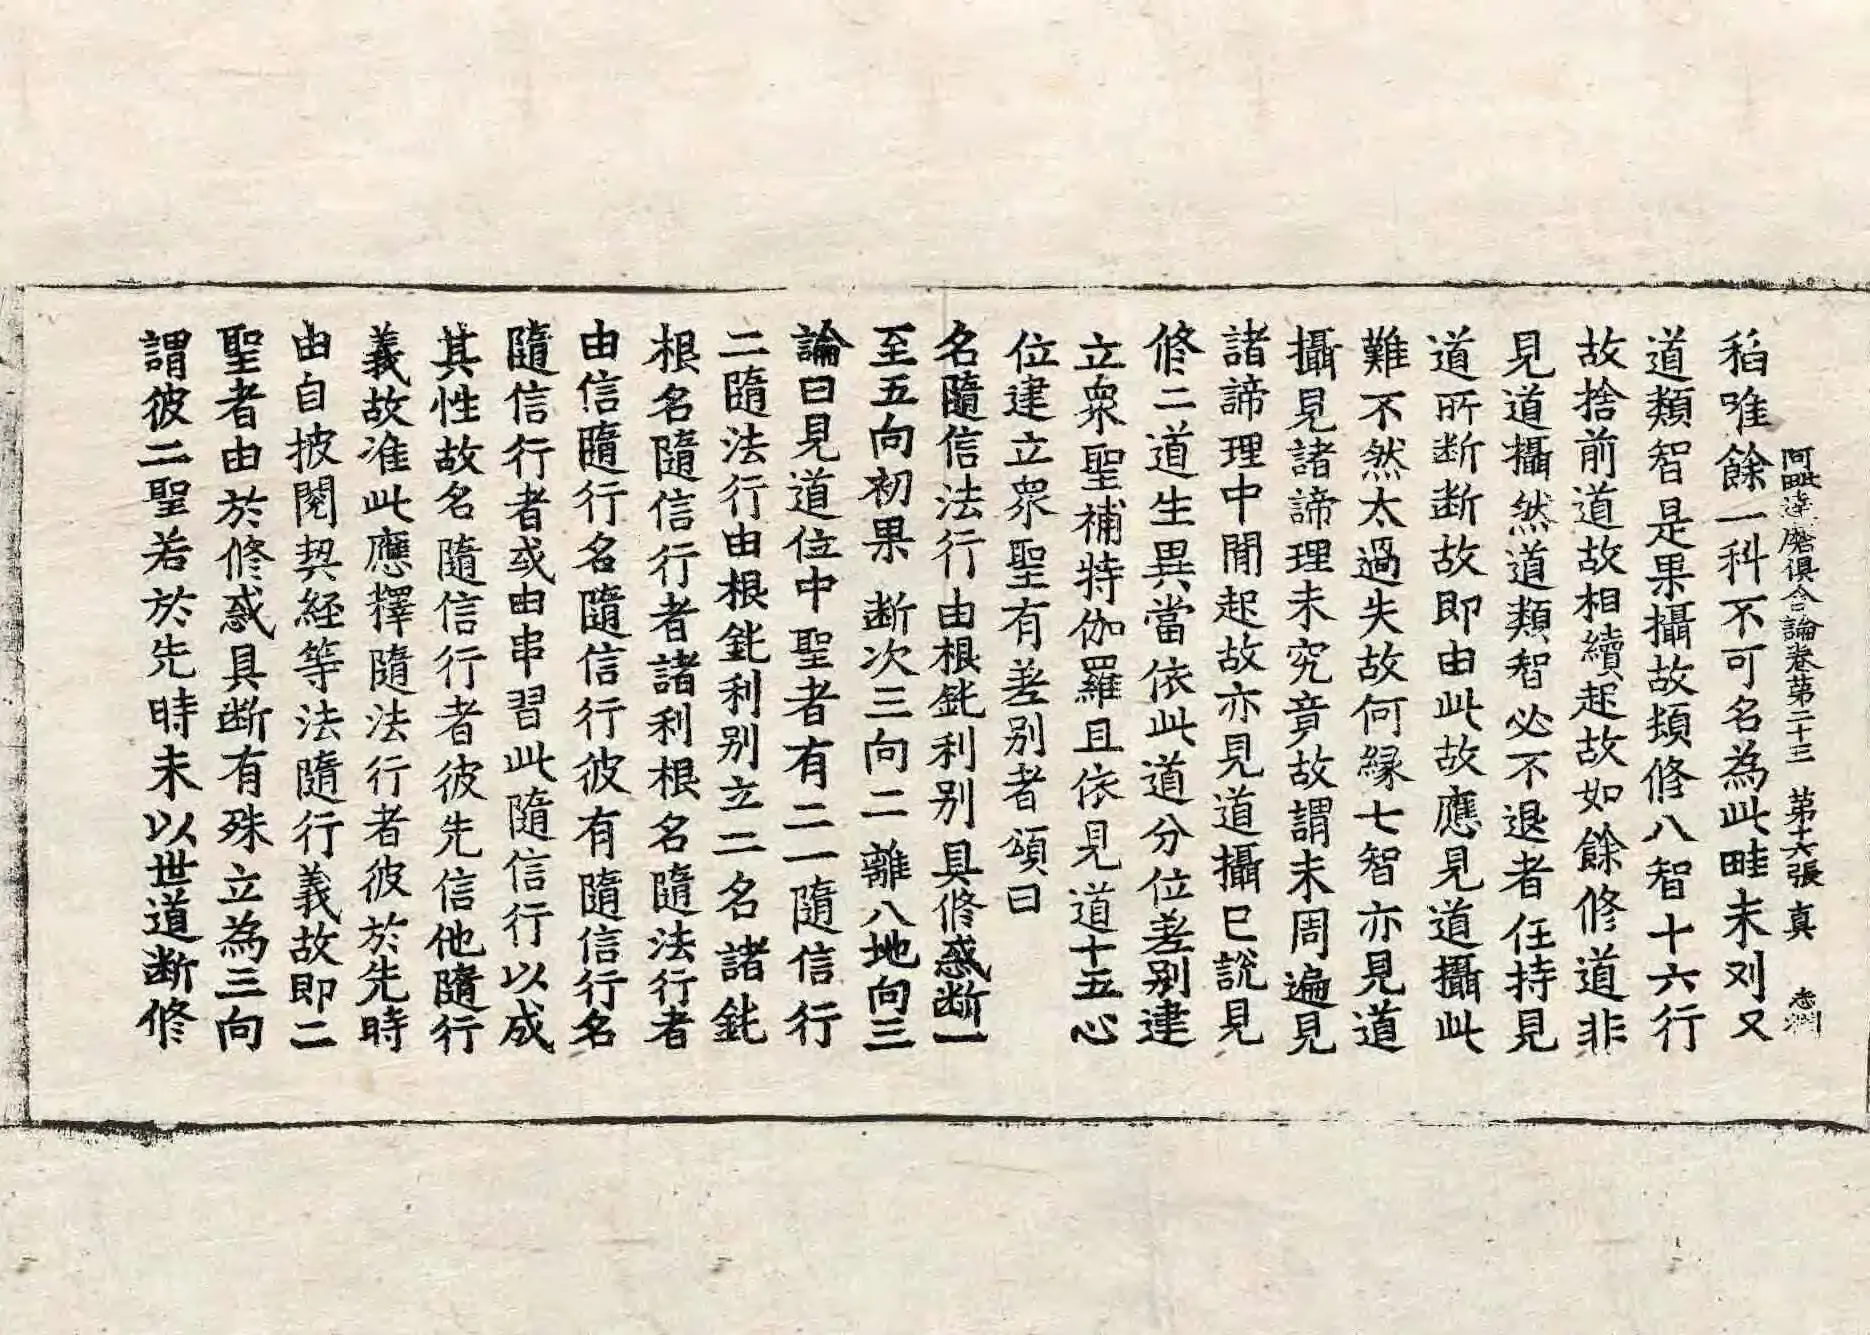 阿毗達磨俱舍論卷第二十三　第十六張　真
稻唯餘一科不可名為此畦未刈又
道類智是果攝故頓修八智十六行
故捨前道故相續起故如餘修道非
見道攝然道類智必不退者任持見
道所断断故即由此故應見道攝此
難不然太過失故何縁七智亦見道
攝見諸諦理未究竟故謂未周遍見
諸諦理中閒起故亦見道攝已說見
修二道生異當依此道分位差别建
立衆聖補特伽羅且依見道十五心
位建立衆聖有差别者頌曰
名隨信法行　由根鈍利别　具修惑断一
至五向初果　断次三向二　離八地向三
論曰見道位中聖者有二一隨信行
二隨法行由根鈍利别立二名諸鈍
根名隨信行者諸利根名隨法行者
由信隨行名隨信行彼有隨信行名
隨信行者或由串習此隨信行以成
其性故名隨信行者彼先信他隨行
義故准此應釋隨法行者彼於先時
由自披閱契経等法隨行義故即二
聖者由於修惑具断有殊立為三向
謂彼二聖若於先時未以世道断修